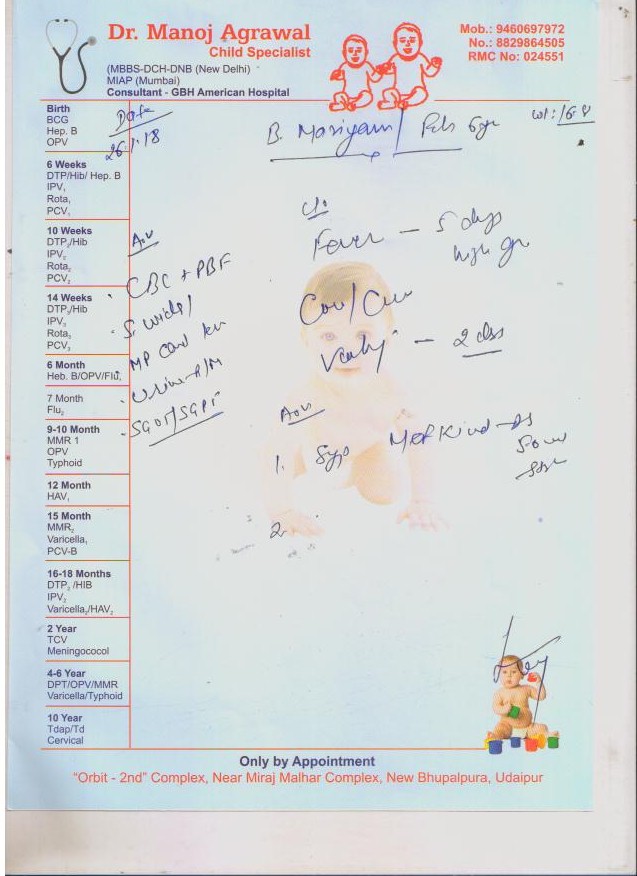 Dr. Manoj Agrawal
Child Specialist
(MBBS-DCH-DNB (New Delhi)
MIAP (Mumbai)
Consultant - GBH American Hospital
Mob.: 9460697972
No.: 8829864505
RMC No: 024551
Birth
BCG
Hep. B
OPV
Date
26.1.18
B. Mariyam/
wt: 16.8
6 Weeks
DTP/Hib/ Hep. B
IPV₁
Rota₁
PCV₁
10 Weeks
DTP₂/Hib
IPV₂
Rota₂
PCV₂
14 Weeks
DTP₃/Hib
IPV₃
Rota₃
PCV₃
6 Month
Heb. B/OPV/Flu₁
7 Month
Flu₂
9-10 Month
MMR 1
OPV
Typhoid
12 Month
HAV₁
15 Month
MMR₂
Varicella₁
PCV-B
16-18 Months
DTP₁ /HIB
IPV₂
Varicella₂/HAV₂
2 Year
TCV
Meningococol
4-6 Year
DPT/OPV/MMR
Varicella/Typhoid
10 Year
Tdap/Td
Cervical
Adv
CBC + PBF
S. widal
MP Card
Urine R/M
SGOT/SGPT
c/o
Fever - 5 days
high gr
- 2 days
Adv
1. Syp Mefkind-DS
2.
Only by Appointment
"Orbit - 2nd" Complex, Near Miraj Malhar Complex, New Bhupalpura, Udaipur